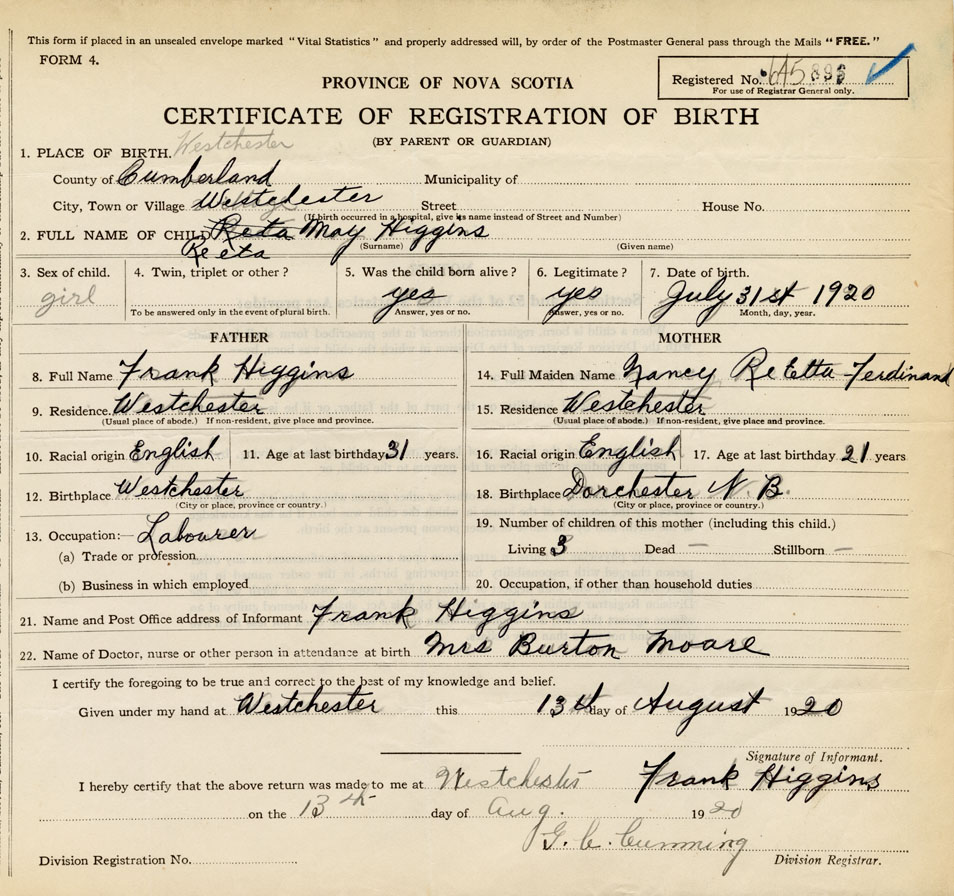 This form if placed in an unsealed envelope marked "Vital Statistics" and properly addressed will, by order of the Postmaster General pass through the Mails "FREE."
FORM 4.
Registered No.
For use of Registrar General only.
PROVINCE OF NOVA SCOTIA
CERTIFICATE OF REGISTRATION OF BIRTH
(BY PARENT OR GUARDIAN)
1. PLACE OF BIRTH. Westchester
County of Cumberland Municipality of
City, Town or Village Westchester Street House No.
(If birth occurred in a hospital, give its name instead of Street and Number)
2. FULL NAME OF CHILD Reta May Higgins
Reeta (Surname) (Given name)
3. Sex of child. 4. Twin, triplet or other? 5. Was the child born alive? 6. Legitimate? 7. Date of birth.
girl yes yes July 31st 1920
To be answered only in the event of plural birth. Answer, yes or no. Answer, yes or no. Month, day, year.
FATHER MOTHER
8. Full Name Frank Higgins 14. Full Maiden Name Nancy ReEtta Ferdinand
9. Residence. Westchester 15. Residence Westchester
(Usual place of abode.) If non-resident, give place and province. (Usual place of abode.) If non-resident, give place and province.
10. Racial origin English 11. Age at last birthday 31 years. 16. Racial origin English 17. Age at last birthday 21 years
12. Birthplace Westchester 18. Birthplace Dorchester N. B.
(City or place, province or country.) (City or place, province or country.)
13. Occupation:— Labourer 19. Number of children of this mother (including this child.)
(a) Trade or profession Living 3 Dead — Stillborn —
(b) Business in which employed 20. Occupation, if other than household duties
21. Name and Post Office address of Informant Frank Higgins
22. Name of Doctor, nurse or other person in attendance at birth Mrs Burton Moare
I certify the foregoing to be true and correct to the best of my knowledge and belief.
Given under my hand at Westchester this 13th day of August 1920
Signature of Informant.
I hereby certify that the above return was made to me at Westchester Frank Higgins
on the 13th day of Aug. 1920
G. C. Cumming
Division Registration No. Division Registrar.